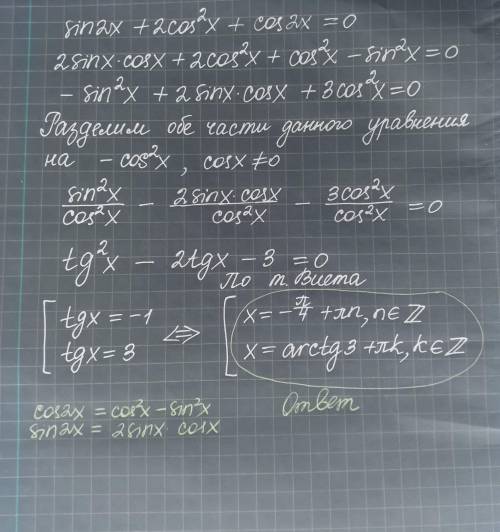 sin2x + 2cos²x + cos2x = 0
2sinx·cosx + 2cos²x + cos²x − sin²x = 0
− sin²x + 2sinx·cosx + 3cos²x = 0
Разделим обе части данного уравнения
на − cos²x, cosx ≠ 0
sin²x/cos²x − 2sinx·cosx/cos²x − 3cos²x/cos²x = 0
tg²x − 2tgx − 3 = 0
По т. Виета
[ tgx = −1 ⇔ [ x = −π/4 + πn, n∈ℤ
tgx = 3 x = arctg3 + πk, k∈ℤ
cos2x = cos²x − sin²x Ответ
sin2x = 2sinx·cosx